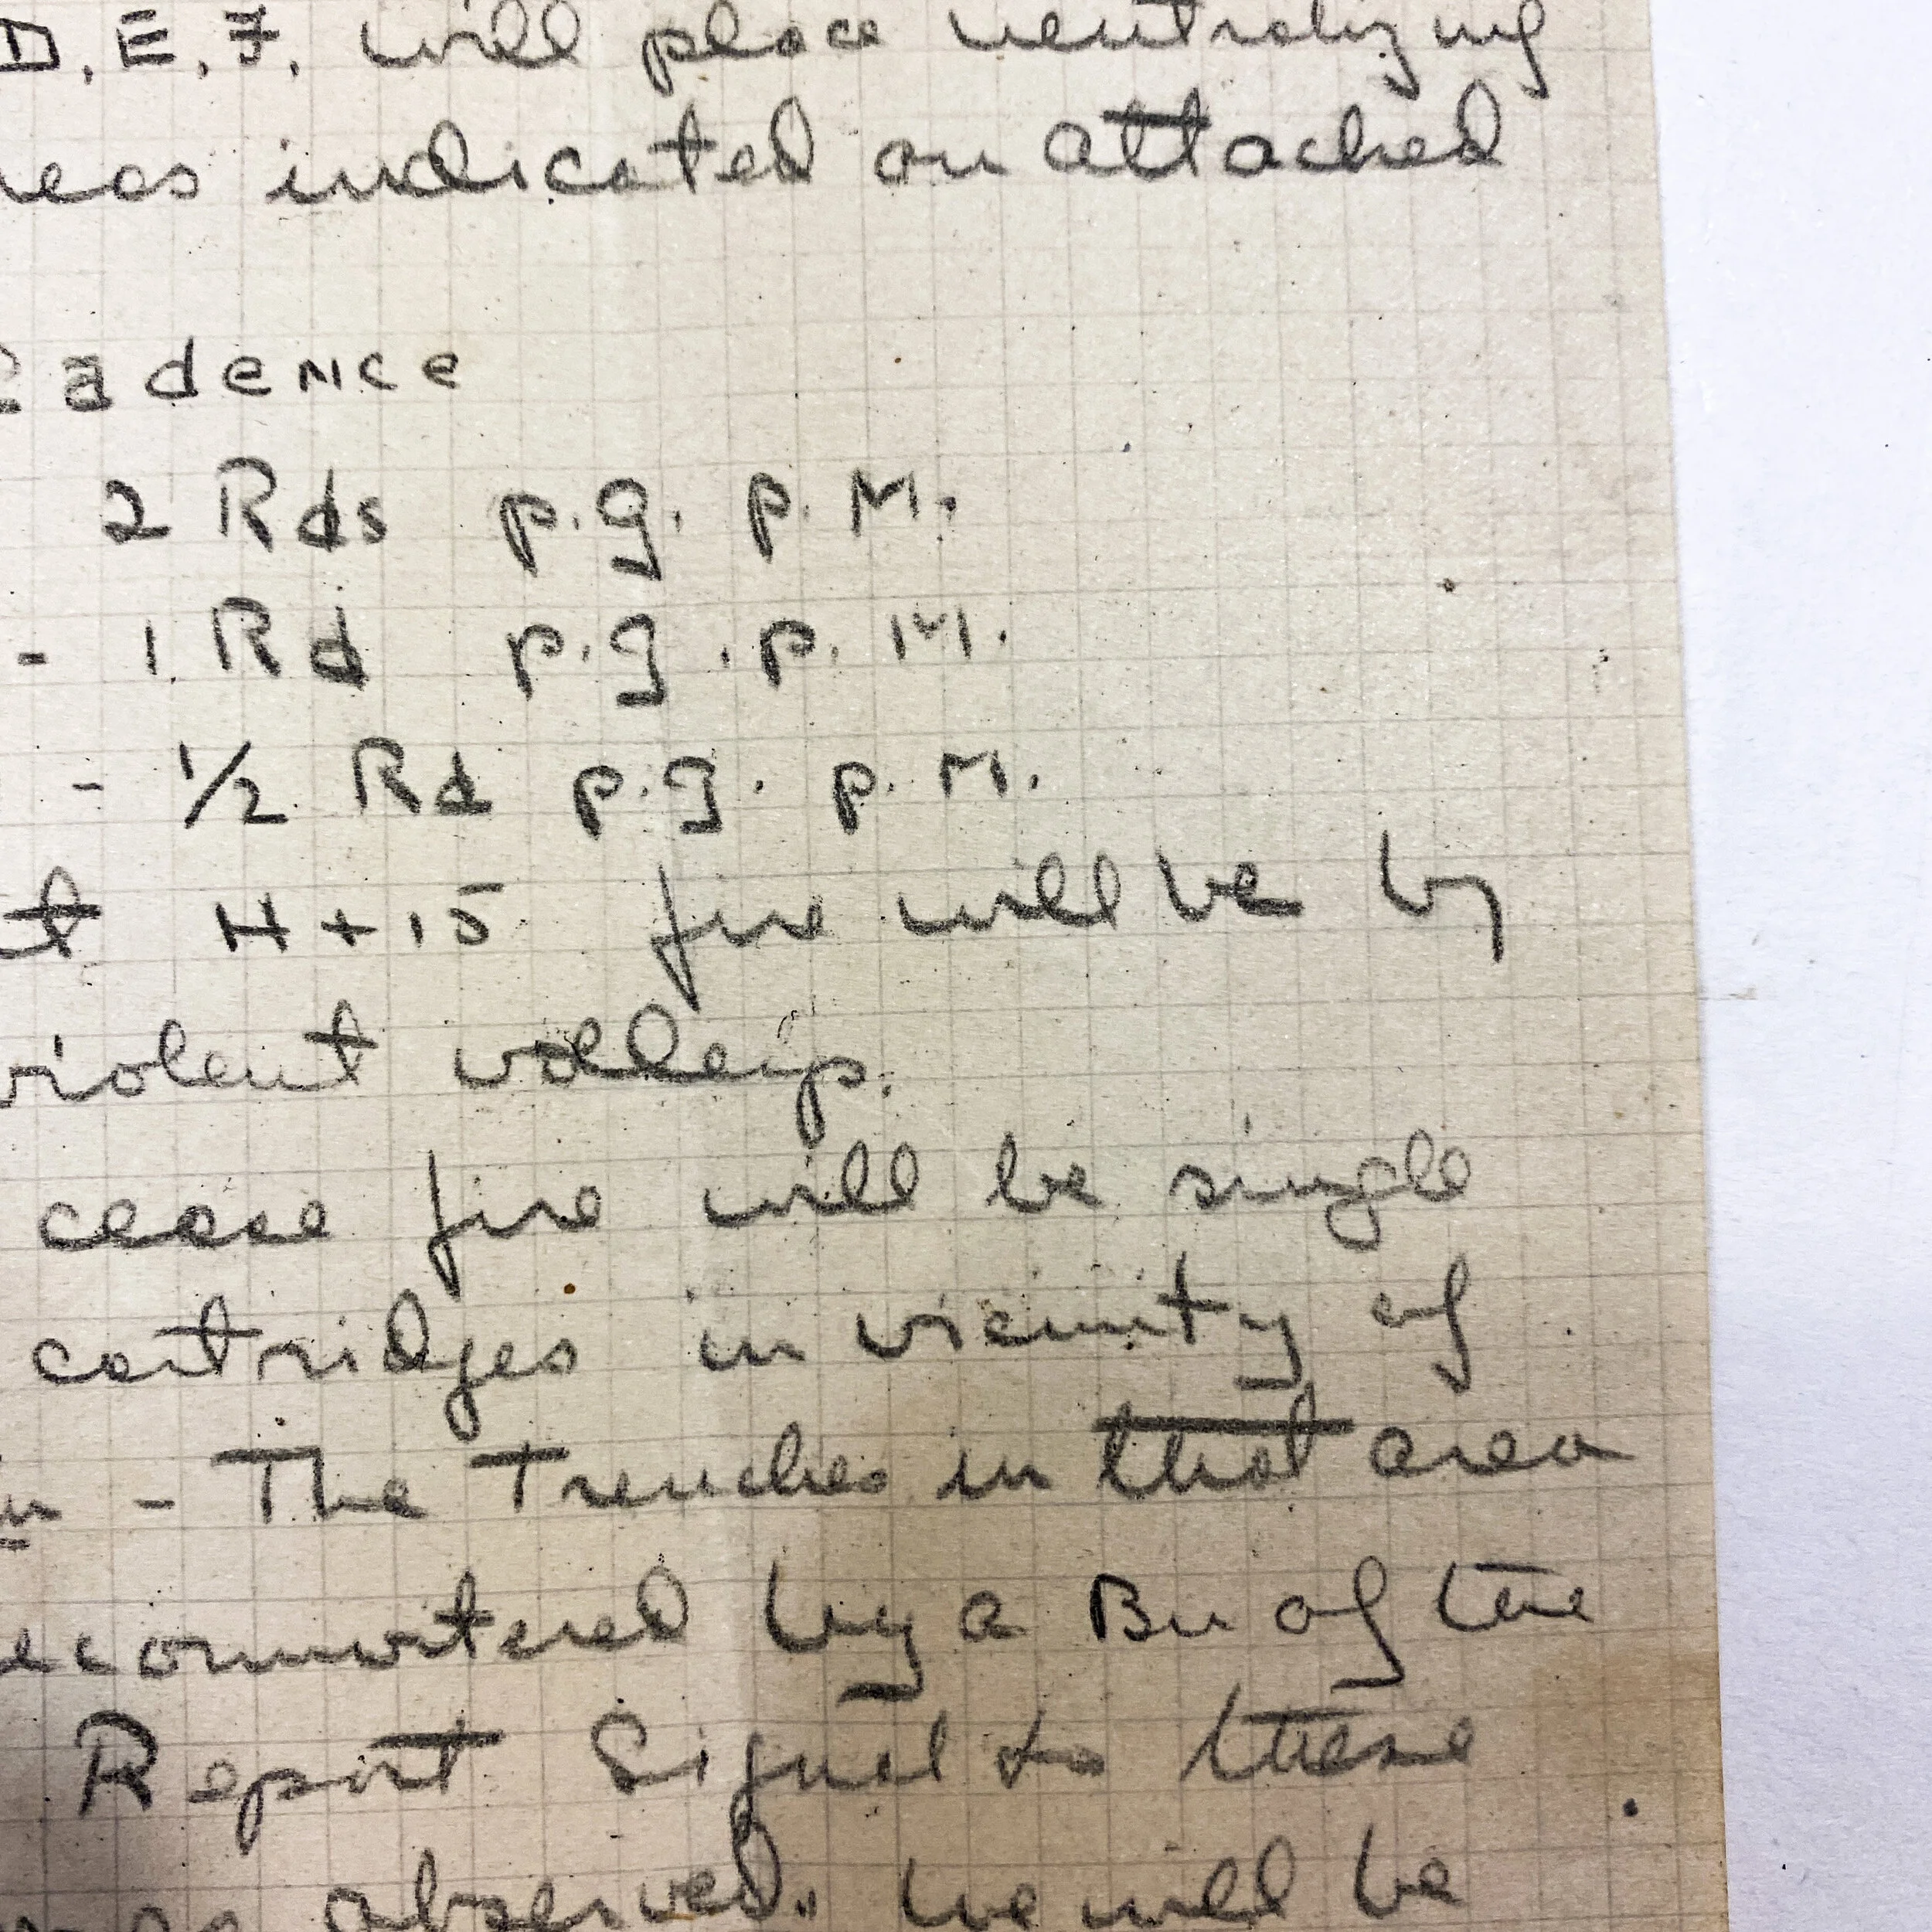 D, E, F, will place neutralizing
reas indicated on attached
Cadence
2 Rds p.g. p. M.
- 1 Rd p.g. p. M.
- 1/2 Rd p.g. p. M.
at H + 15 fire will be by
violent volleys.
cease fire will be single
cartridges in vicinity of
- The Trenches in that area
econnoitered by a Bn of the
Report Signal to these
observed. We will be